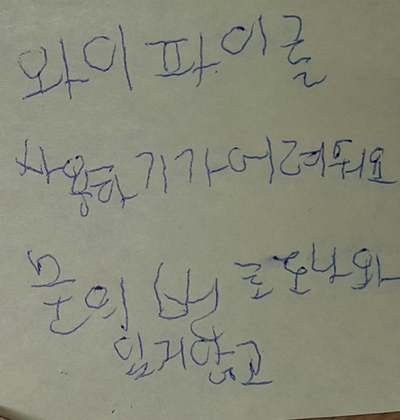 와이파이를
사용하기가어려워요
문의 번호도나와
있지않고